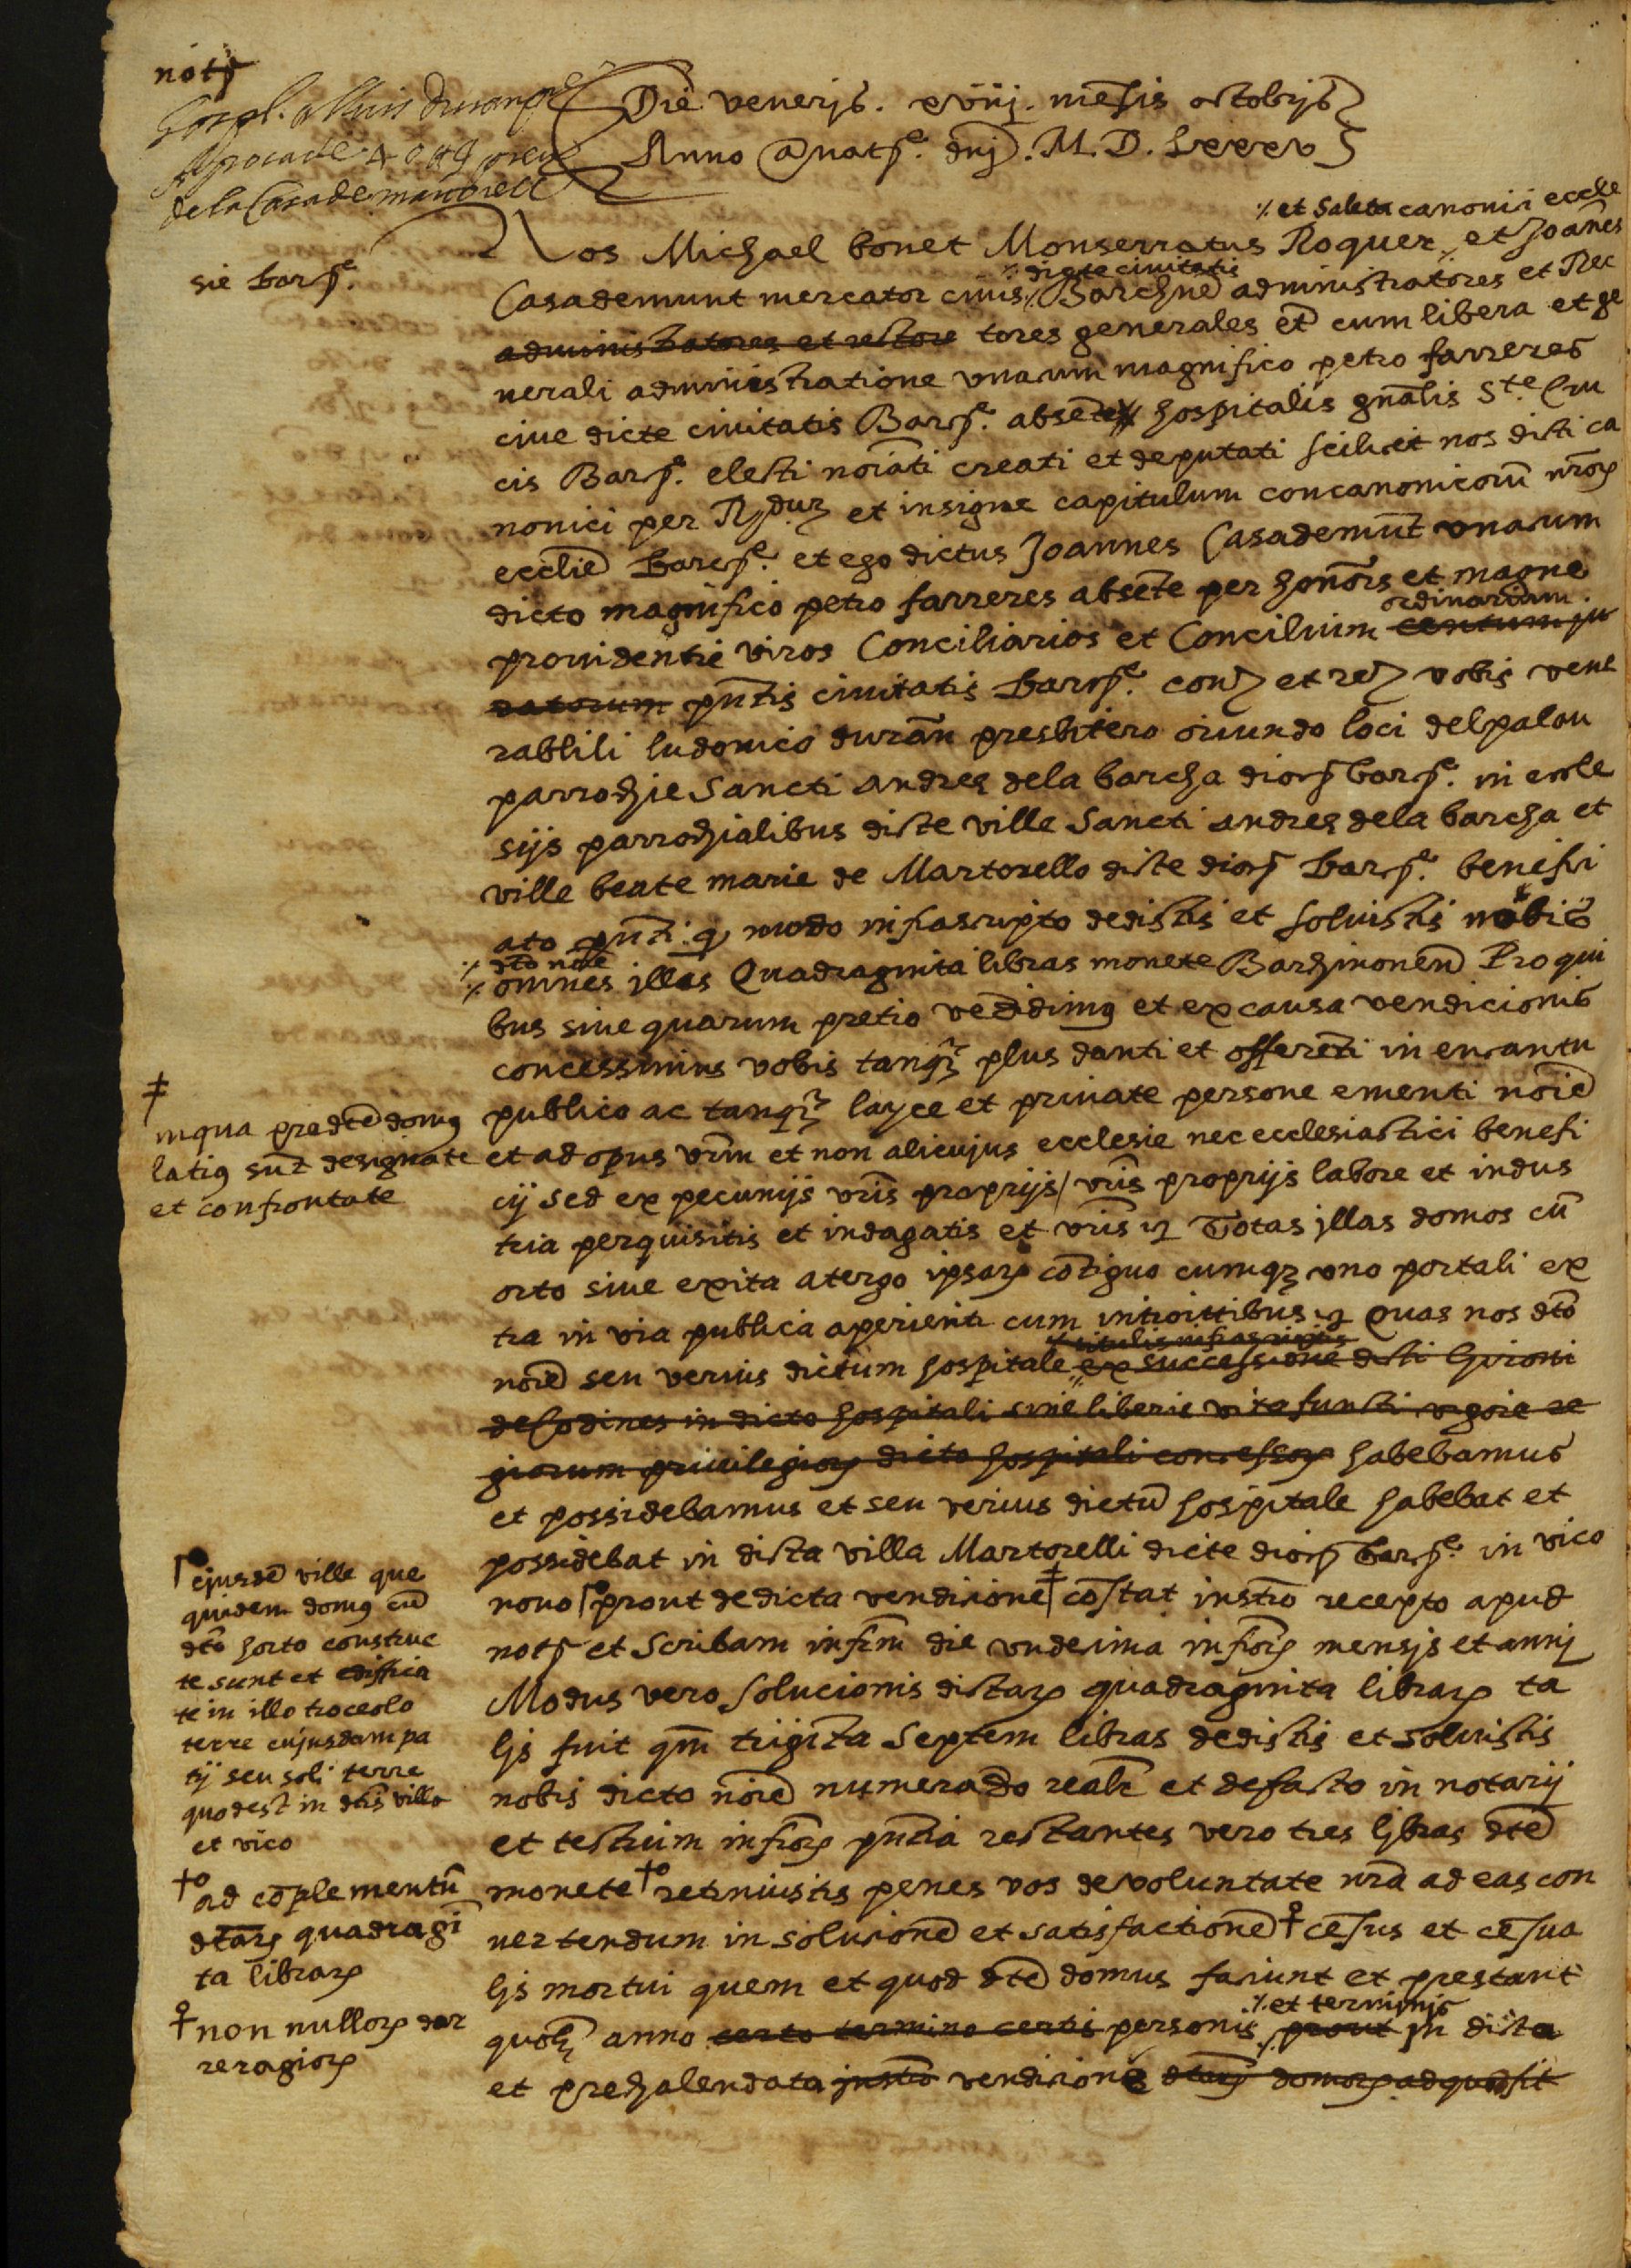 not
de la Casa de martorell
Die venerjs. xviij. mēsis octobrjs
Anno a natē. dnj. M. D. Lxxxv
⁒ et Saleta canonici eccle
sie barȩ.
Nos Michael bonet Monserratus Roquer ⁒ et Joānes
⁒ dicte civitatis
Casademunt mercator civis ⁒ Barchne administratores et Rec
administratores et rectore tores generales et cum libera et ge
nerali administratione unacum magnifico petro farreres
cive dicte civitatis Barȩ. absēte hospitalis gnālis Ste. Cru
cis Barȩ. electi noīati creati et deputati scilicet nos dicti ca
nonici per R.duz et insigne capitulum concanonicorū nrōꝝ
ecclie Barcȩ. et ego dictus Joannes Casademūt unacum
dicto magnifico petro farreres absēte per honōrs et magne
ordinarium
providentie viros Conciliarios et Concilium centum ju
ratorum pn̄tis civitatis Barȩ. conz et rez vobis vene
rablili ludovico durān presbitero oriundo loci del palau
parrochie Sancti Andree dela barcha dioȩ barȩ. in eccle
sijs parrochialibus dicte ville Sancti andree dela barcha et
ville beate marie de Martorello dicte dioȩ Barȩ. benefici
ato pn̄ti. q modo infrascripto dedistis et solvistis nobis
⁒ dto noīe
⁒ omnes jllas Quadraginta libras monete Barchinonen̄ Pro qui
bus sive quarum pretio vēdidimꝰ et ex causa vendicionis
concessimus vobis tanqꝫ plus danti et offerēti in encantu
publico ac tanqꝫ layce et private persone ementi noīe
et ad opus vrm̄ et non alicujus ecclesie nec ecclesiastici benefi
cij sed ex pecunijs vrīs proprijs / vrīs proprijs labore et indus
tria perquisitis et indagatis et vrīs ꝫ Totas jllas domos cū
orto sive exita a tergo ipsaꝝ cōtiguo cumqꝫ uno portali ex
tra in via publica aperienti cum introitibus ꝫ Quas nos dto
titulis infrascriptis
noīe seu verius dictum hospitale ex successione dicti Gironi
de Codines in dicto hospitali sine liberis vita functi vigore re
giorum privilegioꝝ dicto hospitali concessoꝝ habebamus
et possidebamus et seu verius dictū hospitale habebat et
possidebat in dicta villa Martorelli dicte dioȩ barȩ. in vico
novo ⌈ prout de dicta vendicione ‡ cōstat instro recepto apud
notȩ et Scribam infrm̄ die undecima infrōꝝ mensjs et annj
Modus vero solucionis dictaꝝ quadraginta libraꝝ ta
ljs fuit qm̄ trigīta Septem libras dedistis et solvistis
nobis dicto noīe numerādo realr̄ et defacto in notarij
et testium infrōꝝ pn̄tia restantes vero tres ljbras dtē
monete †º retinuistis penes vos de voluntate nrā ad eas con
vertendum in solucionē et satisfactionē ♀ cēsus et cēsua
ljs mortui quem et quod dtē domus faciunt et prestant
⁒ et terminis
quoltꝫ anno certo termino certis personis ⁒ prout in dicta
et prechalendata instrō vendicione dtaꝝ domoꝝ adquisit
‡
in qua predtē domꝰ
latiꝰ sūt designate
et confrontate
⌈ ejusdē ville que
quidem domꝰ cū
dtō horto construc
te sunt et edifica
te in illo troceolo
terre cujusdam pa
tij seu soli terre
quod est in dtīs villa
et vico
†º ad cōplementū
dtaꝝ quadragī
ta libraꝝ
♀ non nulloꝝ dar
reragioꝝ